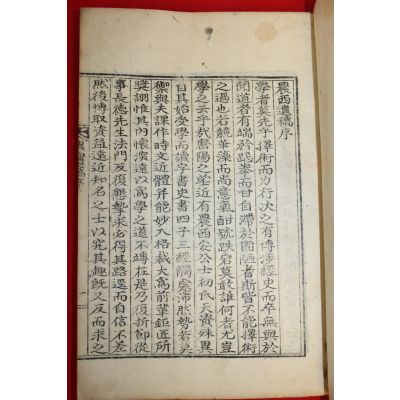 農西遺稿序
學者莫先乎擇術而力行次之有博涉經史而卒無與於
聞道者有端於奉而甘自滯於固陋者斯皆不能擇術
之過也若競華藻而尚意氣酣號跌宕莫敢誰何者尤豈
學之云乎哉密陽之近有農西安公士初氏天資殊異
自其始受學而讀字書史書四子三經處沛然勢若莫
禦與夫課作時文近體幷能妙入格裁大爲前輩鉅匠所
獎詡惟其內懷遠以爲學之道不專在是乃復折節從
事長德先生法門反復懇摯求必得其路逕而自信不差
然後博取資益遠近知名之士以究其趣旣又反而求之